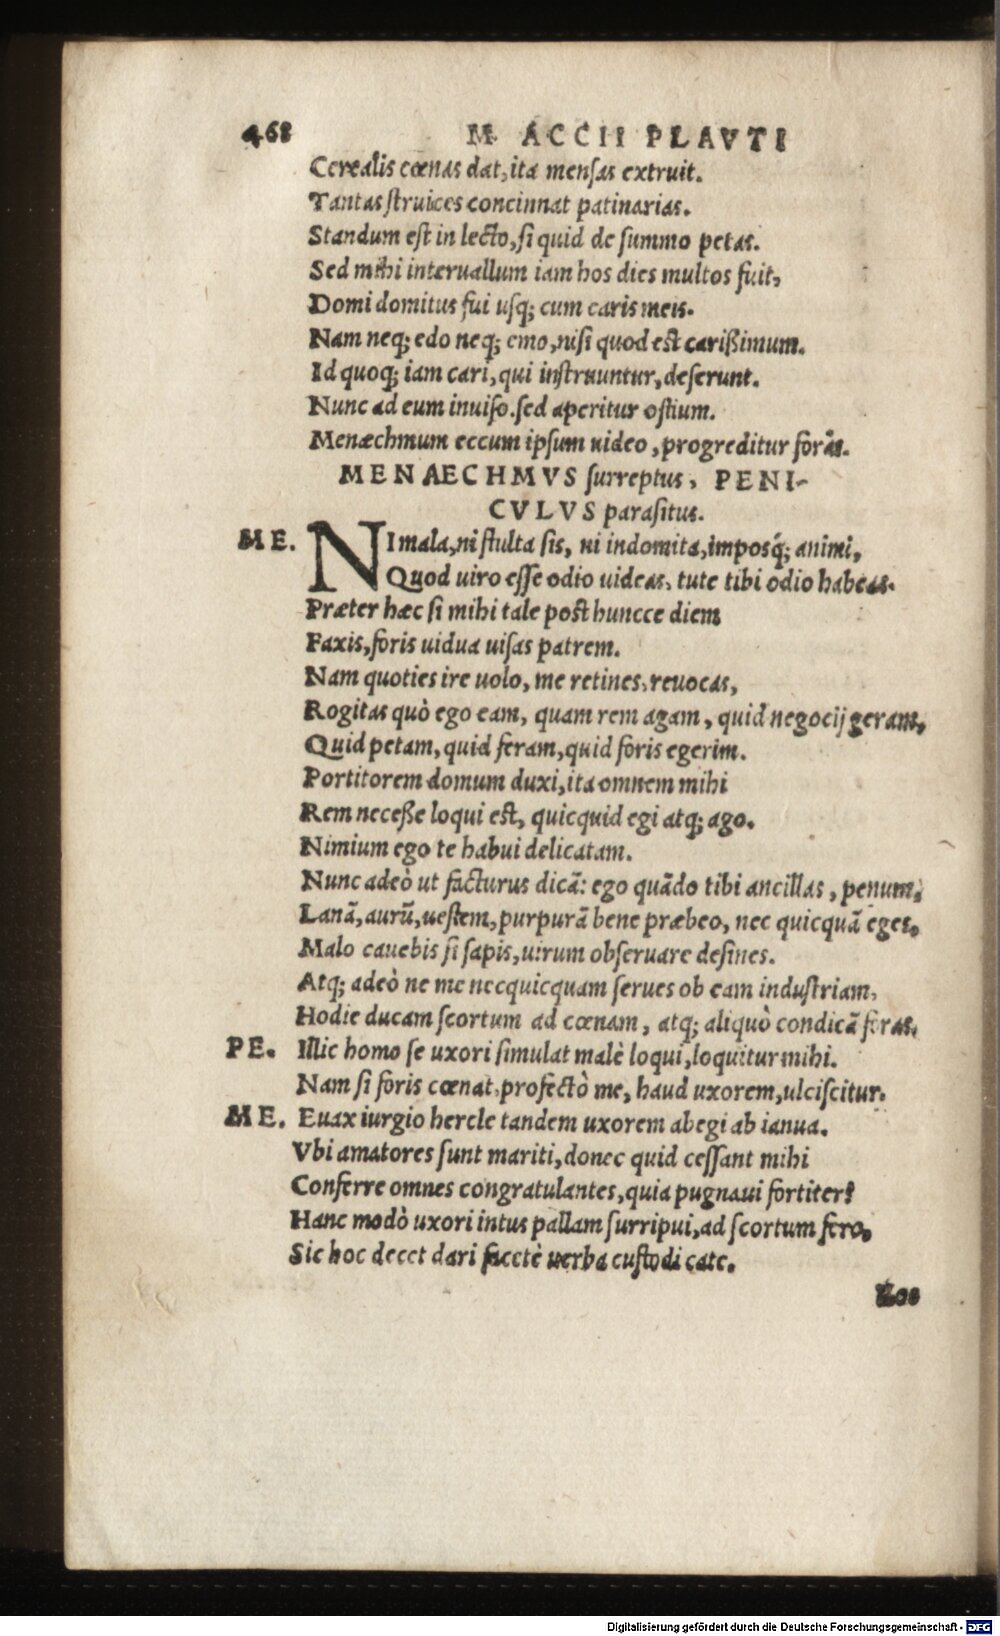 468 M. ACCII PLAVTI
Cerealis cœnas dat, ita mensas extruit.
Tantas struices concinnat patinarias.
Standum est in lecto, si quid de summo petas.
Sed mihi interuallum iam hos dies multos fuit,
Domi domitus fui usq; cum caris meis.
Nam neq; edo neq; emo, nisi quod est carißimum.
Id quoq; iam cari, qui instruuntur, deserunt.
Nunc ad eum inuiso. sed aperitur ostium.
Menæchmum eccum ipsum uideo, progreditur forâs.
MENAECHMVS surreptus, PENI-
CVLVS parasitus.
ME. NI mala, ni stulta sis, ni indomita, imposq́; animi,
Quod uiro esse odio uideas, tute tibi odio habeas.
Præter hæc si mihi tale post huncce diem
Faxis, foris uidua uisas patrem.
Nam quoties ire uolo, me retines, reuocas,
Rogitas quò ego eam, quam rem agam, quid negocij geram,
Quid petam, quid feram, quid foris egerim.
Portitorem domum duxi, ita omnem mihi
Rem neceße loqui est, quicquid egi atq; ago.
Nimium ego te habui delicatam.
Nunc adeò ut facturus dicā: ego quādo tibi ancillas, penum,
Lanā, aurū, uestem, purpurā bene præbeo, nec quicquā eges,
Malo cauebis si sapis, uirum obseruare desines.
Atq; adeò ne me necquicquam serues ob eam industriam,
Hodie ducam scortum ad cœnam, atq; aliquò condicā foras.
PE. Illic homo se uxori simulat malè loqui, loquitur mihi.
Nam si foris cœnat, profectò me, haud uxorem, ulciscitur.
ME. Euax iurgio hercle tandem uxorem abegi ab ianua.
Vbi amatores sunt mariti, donec quid cessant mihi
Conferre omnes congratulantes, quia pugnaui fortiter?
Hanc modò uxori intus pallam surripui, ad scortum fero,
Sic hoc decet dari facetè uerba custodi cate.
Digitalisierung gefördert durch die Deutsche Forschungsgemeinschaft - DFG